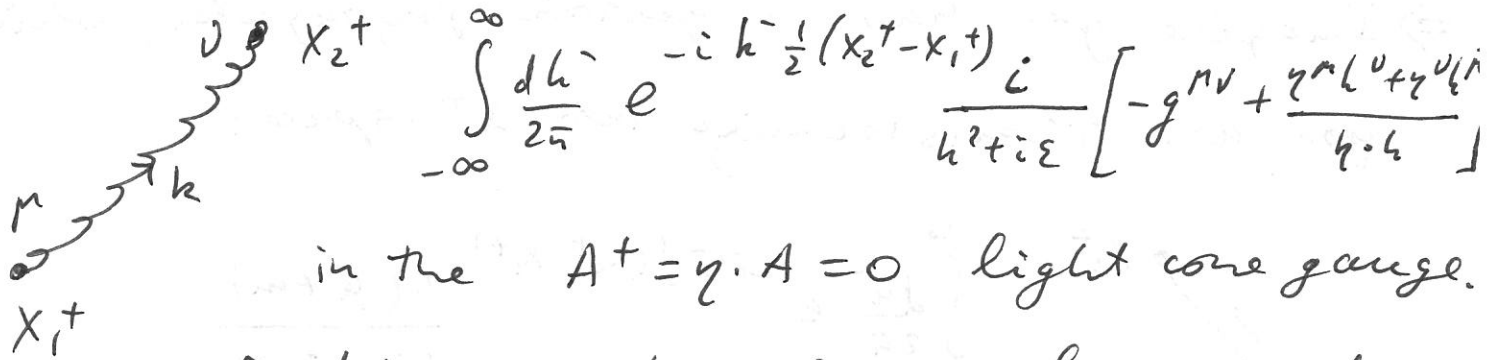 ν X₂⁺ ∫_{-∞}^{∞} dk⁻/2π e^{-i k⁻ ½ (X₂⁺ - X₁⁺)} i/(k²+iε) [-g^{μν} + (η^μ k^ν + η^ν k^μ)/(η·k)]
μ k
in the A⁺ = η·A = 0 light cone gauge.
X₁⁺